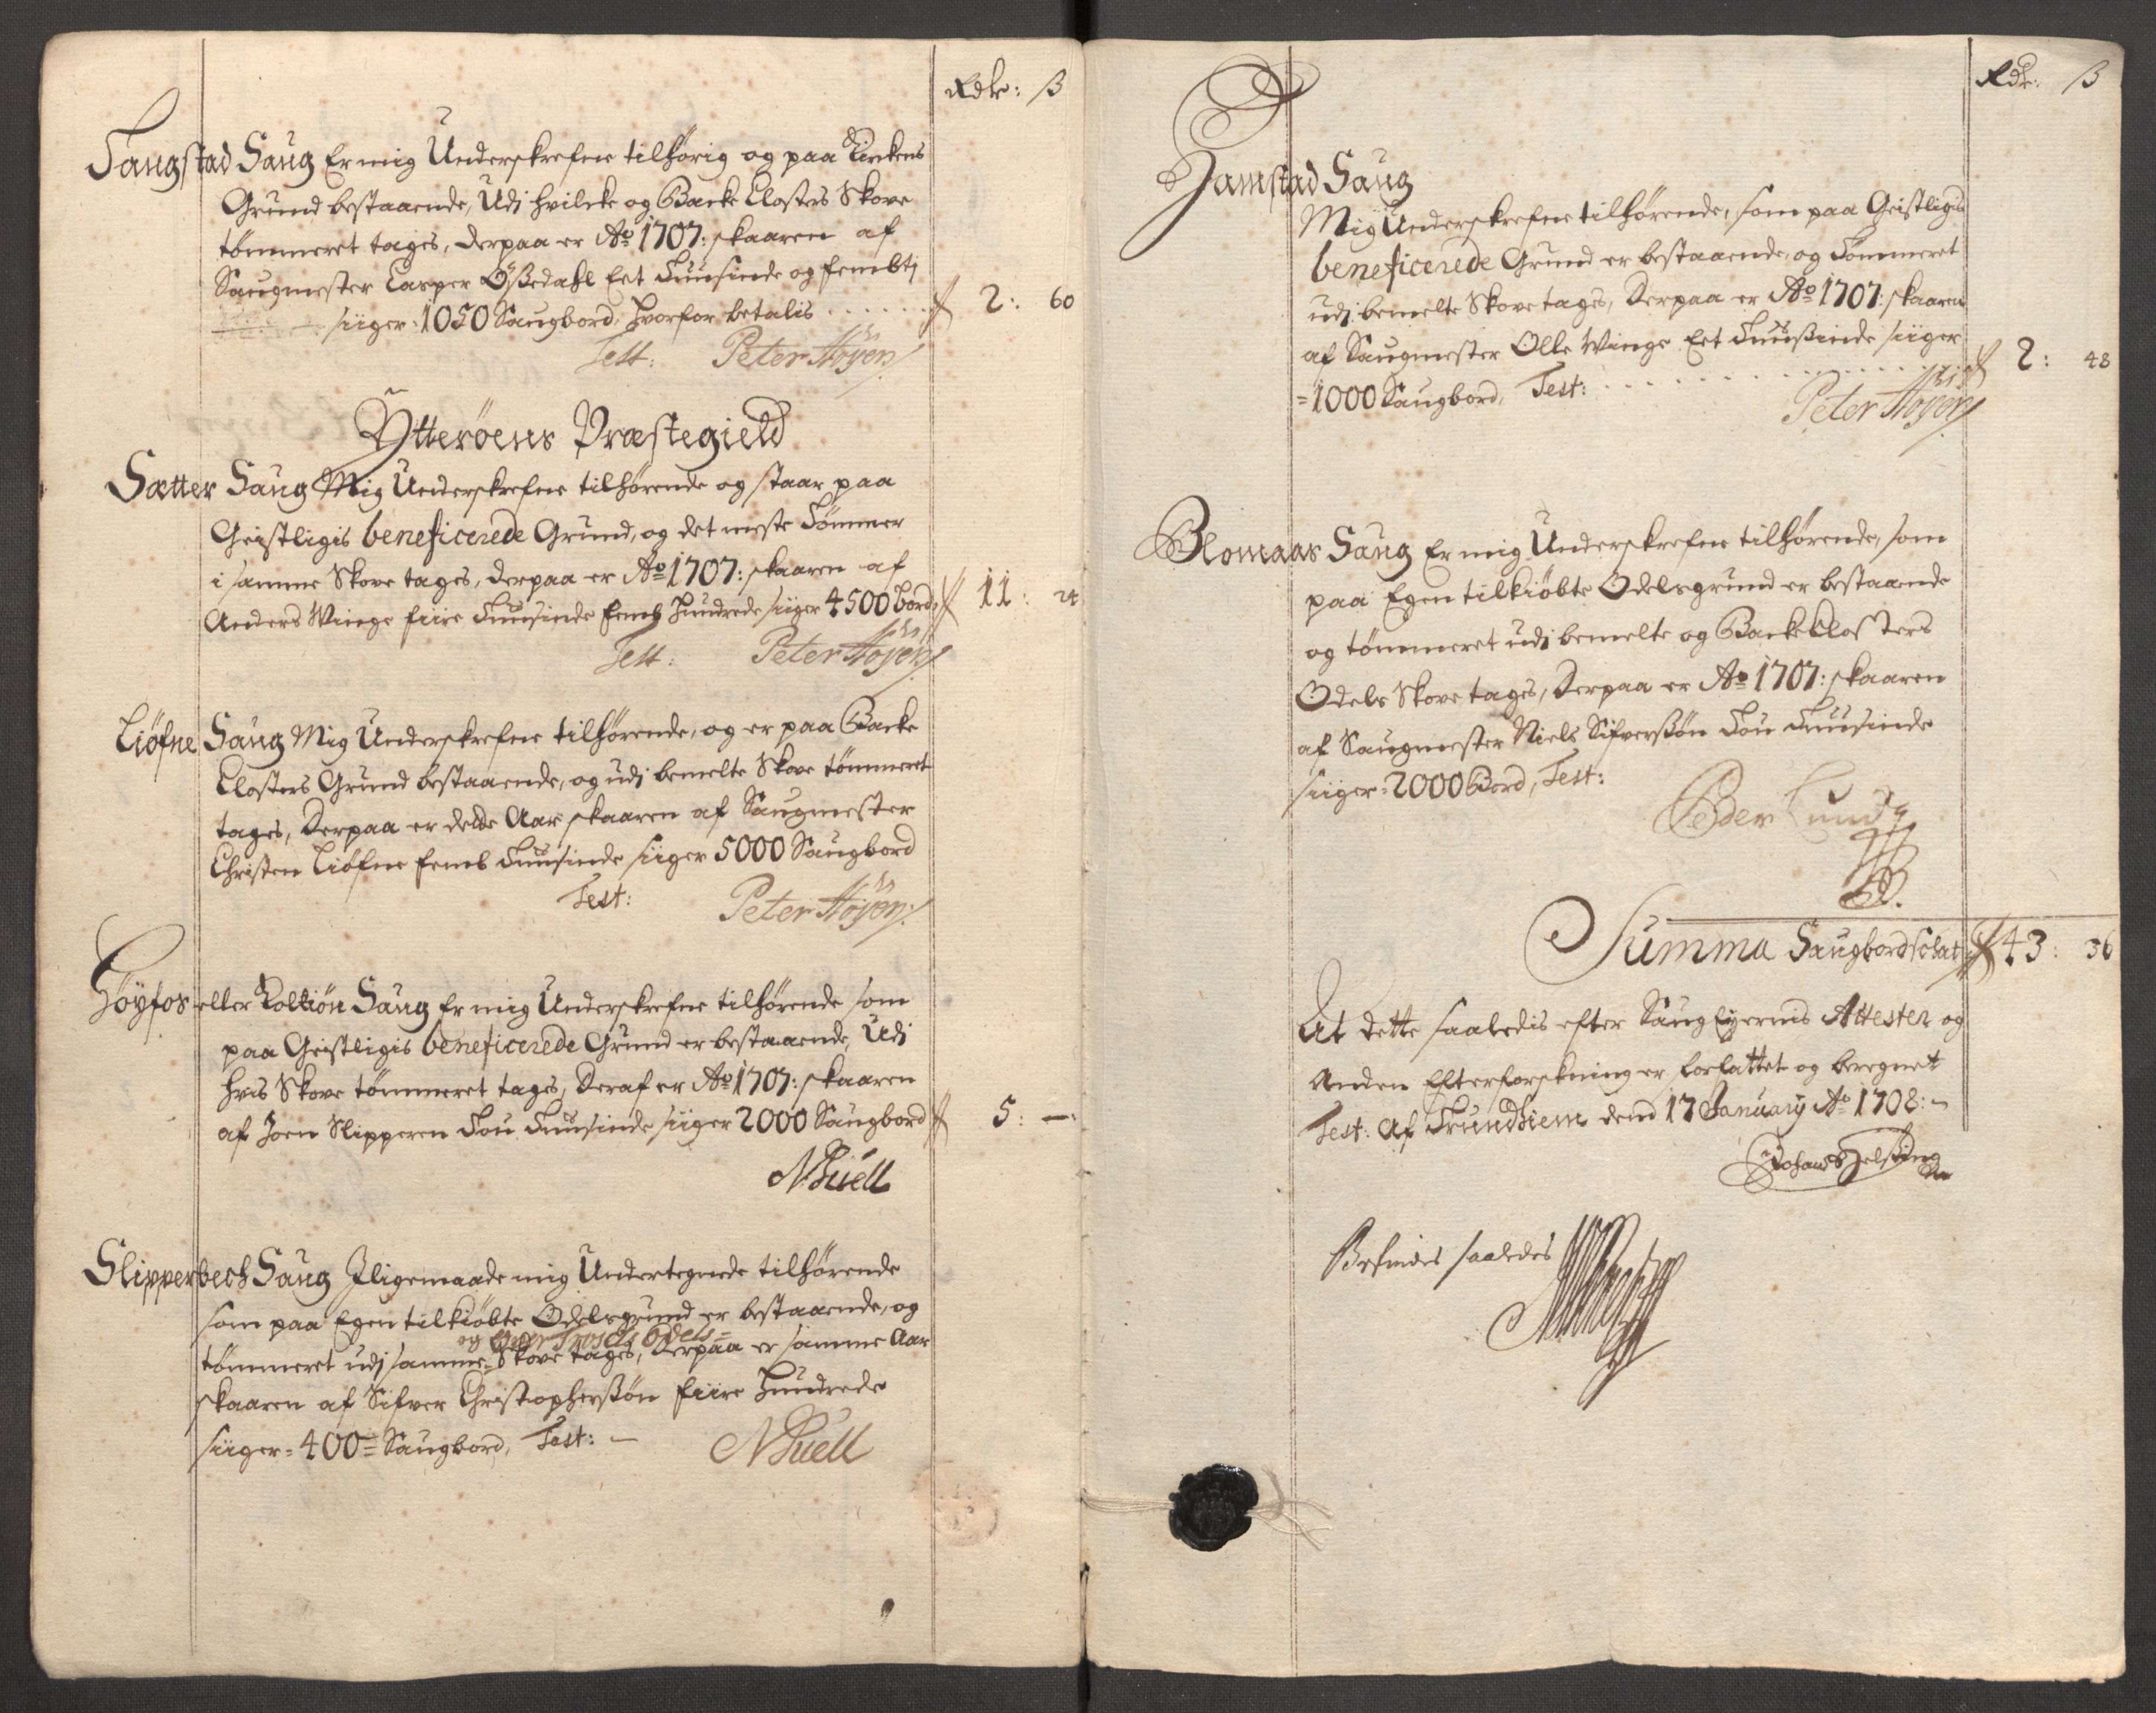 Rdlr: ß
Sangstad Saug Er mig Underskrefne tilhørig og paa Kirkens
Grund bestaaende, Udj hvilcke og Backe Closters Skove
tømmeret tages, derpaa er Aō 1707: skaaren af
Saugmester Casper Ößedahl Eet Tuusinde og fembtj
siiger: 1050 Saugbord, hvorfor betalis ...... 2: 60
Test: Peter Höyen
Ÿtterøens Præstegield
Sætter Saug Mig Underskrefne tilhørende og staar paa
Geistligis beneficerede Grund, og det meste Tømmer
i samme Skove tages, derpaa er Aō 1707: skaaren af
Anders Winge fiire Tuusinde femb Hundrede siiger 4500 bord, 11: 24
Test: Peter Höyen
Liøfne Saug Mig Underskrefne tilhørende, og er paa Backe
Closters Grund bestaaende, og udj bemelte Skove tømmeret
tages, Derpaa er dette Aar skaaren af Saugmester
Christen Liøfne femb Tuusinde siiger 5000 Saugbord
Test: Peter Höyen
Höyfos eller Koltiön Saug Er mig Underskrefne tilhørende som
paa Geistligis beneficerede Grund er bestaaende, Udj
hvis Skove tømmeret tages, Deraf er Aō 1707: skaaren
af Joen Slipperen Tou Tuusinde siiger 2000 Saugbord 5: —
N Buell
Slipperbech Saug Iligemaade mig Undertegnede tilhørende
som paa Egen tilkiøbte Odelsgrund er bestaaende, og
og Ejer Trosels Odels=
tømmeret udj samme Skove tages, Derpaa er samme Aar
skaaren af Sifver Christopherßøn fiire Hundrede
siiger = 400 = Saugbord, Test: —
N Buell
Rdlr: ß
Jamstad Saug
Mig Underskrefne tilhørende, som paa Geistligis
beneficerede Grund er bestaaende, og Tømmeret
udj bemelte Skove tages, Derpaa er Aō 1707: skaaren
af Saugmester Olle Winge Eet Tuusinde siiger
=1000 Saugbord, Test: ...... 2: 48
Peter Höyen
Blomaas Saug Er mig Underskrefne tilhørende, som
paa Egen tilkiøbte Odelsgrund er bestaaende
og tømmeret udj bemelte og Backe Closters
Odels Skove tages, Derpaa er Aō 1707: skaaren
af Saugmester Niels Sifverßøn Tou Tuusinde
siiger = 2000 Bord, Test:
Peder Lund
Summa Saugbordschat 43: 36
At dette saaledis efter Saug Eyernis Attester og
Anden Efterforskning er forfattet og beregnet
Test: Af Trundhiem dend 17 January Aō 1708: —
Befindes saaledes